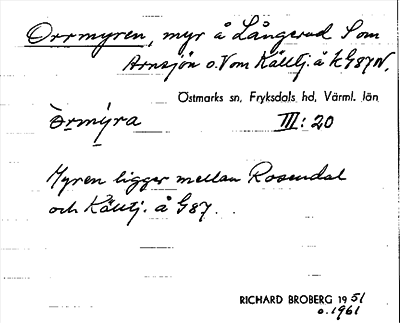 Orrmyren, myr å Långerud Som
Arnsjön o. Vom Källtj. å k G87N.
Östmarks sn, Fryksdals hd, Värml. län
Òrmýra III: 20
Myren ligger mellan Rosendal
och Källtj. å G87.
RICHARD BROBERG 1951
o. 1961